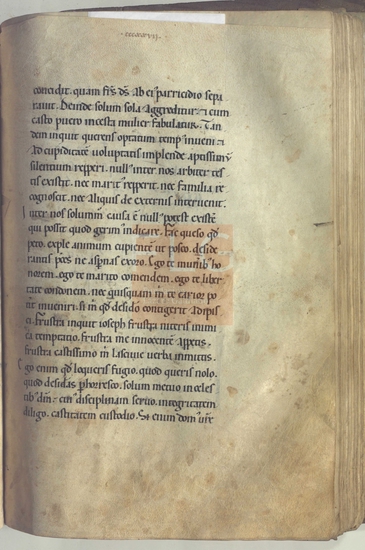 concidit. quam frs ds Ab ei parricidio sepa
ravit. Deinde solum sola Aggreditur & cum
casto puero incesta mulier fabulatur. Tan
dem inquit querens optatum temp inveni &
Ad cupiditatē voluptatis implende aptissimū
silentium repperi. null' inter nos arbiter tes
tis existit. nec marit repperit. nec familia re
cognoscit. nec Aliquis de externis intervenit.
Inter nos solummō causa ē null' potest existere
qui possit quod gerim indicare. hac queso qd
peto. exple animum cupientē ut posco. deside
rantis preces ne aspnaris exoro. Ego te munib ho
norem. ego te marito comendem. ego te liber
tate condonem. nec quisquam in te carior po
rit inveniri. si m qd desido contigerit Adipis
ci. frustra inquit ioseph frustra niteris inimi
ca temptatio. frustra me innocentē Appetis.
frustra castissimo m lascivie verba inmittis.
Ego enim qd loqueris fugio. quod queris nolo.
quod desidas phorresco. solum metuo in celes
tib dnm. eius disciplinam servo. integritatem
diligo. castitatem custodio. Et enim dom